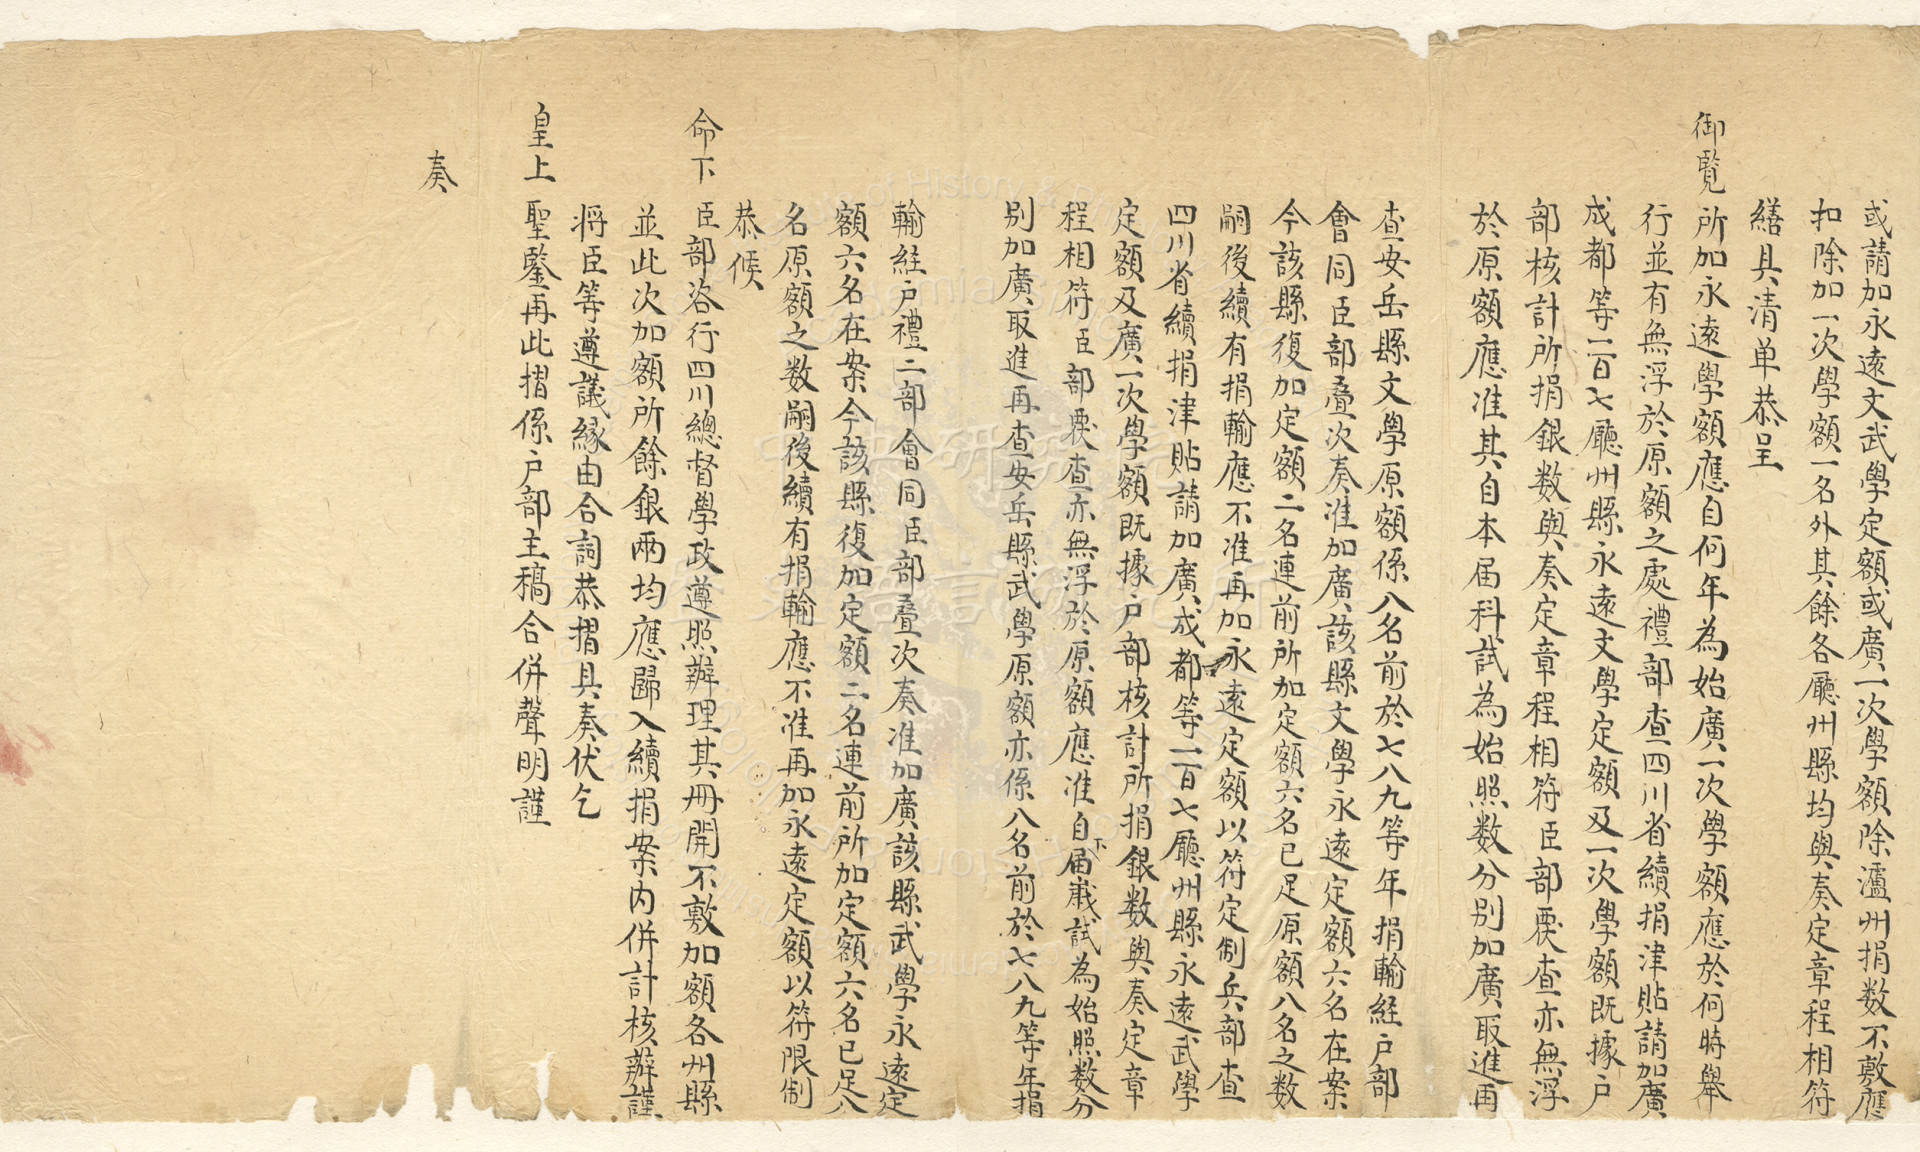 或請加永遠文武學定額或廣一次學額除瀘州捐数不敷應
扣除加一次學額一名外其餘各廳州縣均與奏定章程相符
繕具清单恭呈
御覽所加永遠學額應自何年為始廣一次學額應於何時舉
行並有無浮於原額之處禮部查四川省續捐津貼請加廣
成都等一百七廳州縣永遠文學定額及一次學額既據户
部核計所捐銀数與奏定章程相符臣部覆查亦無浮
於原額應准其自本届科試為始照数分别加廣取進再
查安岳縣文學原額係八名前於七八九等年捐輸經户部
會同臣部叠次奏准加廣該縣文學永遠定額六名在案
今該縣復加定額二名連前所加定額六名已足原額八名之数
嗣後續有捐輸應不准再加永遠定額以符定制兵部查
四川省續捐津貼請加廣成都等一百七廳州縣永遠武學
定額及廣一次學額既據户部核計所捐銀数與奏定章
程相符臣部覆查亦無浮於原額應准自下届歲試為始照数分
别加廣取進再查安岳縣武學原額亦係八名前於七八九等年捐
輸經户禮二部會同臣部叠次奏准加廣該縣武學永遠定
額六名在案今該縣復加定額二名連前所加定額六名已足八
名原額之数嗣後續有捐輸應不准再加永遠定額以符限制
恭候
命下臣部咨行四川總督學政遵照辦理其冊開不敷加額各州縣
並此次加額所餘銀兩均應歸入續捐案内併計核辦謹
将臣等遵議緣由合詞恭摺具奏伏乞
皇上聖鑒再此摺係户部主稿合併聲明謹
奏
中央研究院
歷史語言研究所